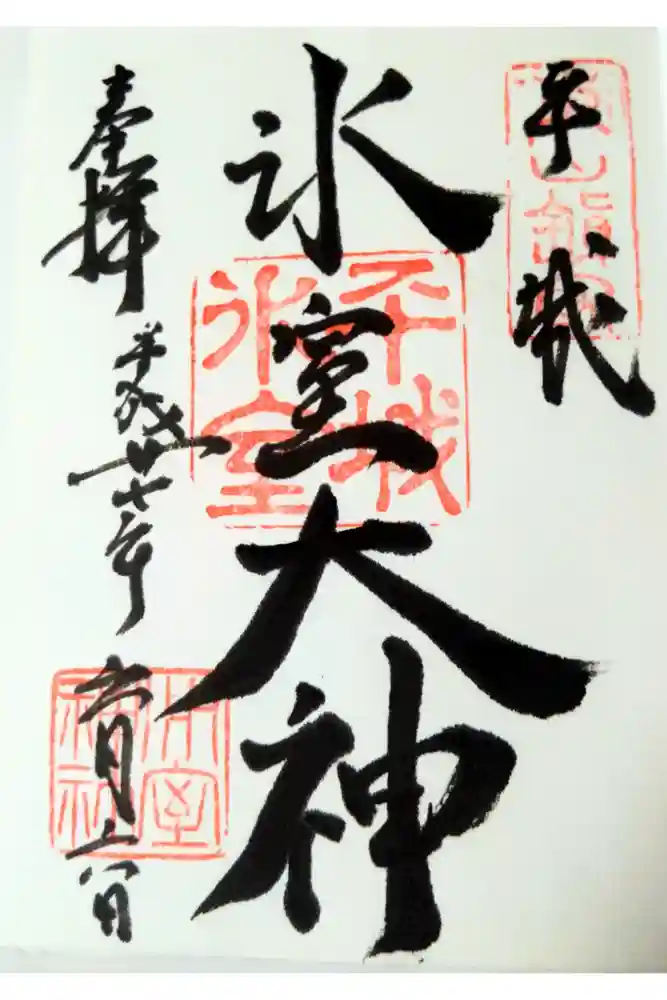 平城
氷室大神
奉拝
平成廿七年
六月
平城
氷室
氷室
神社